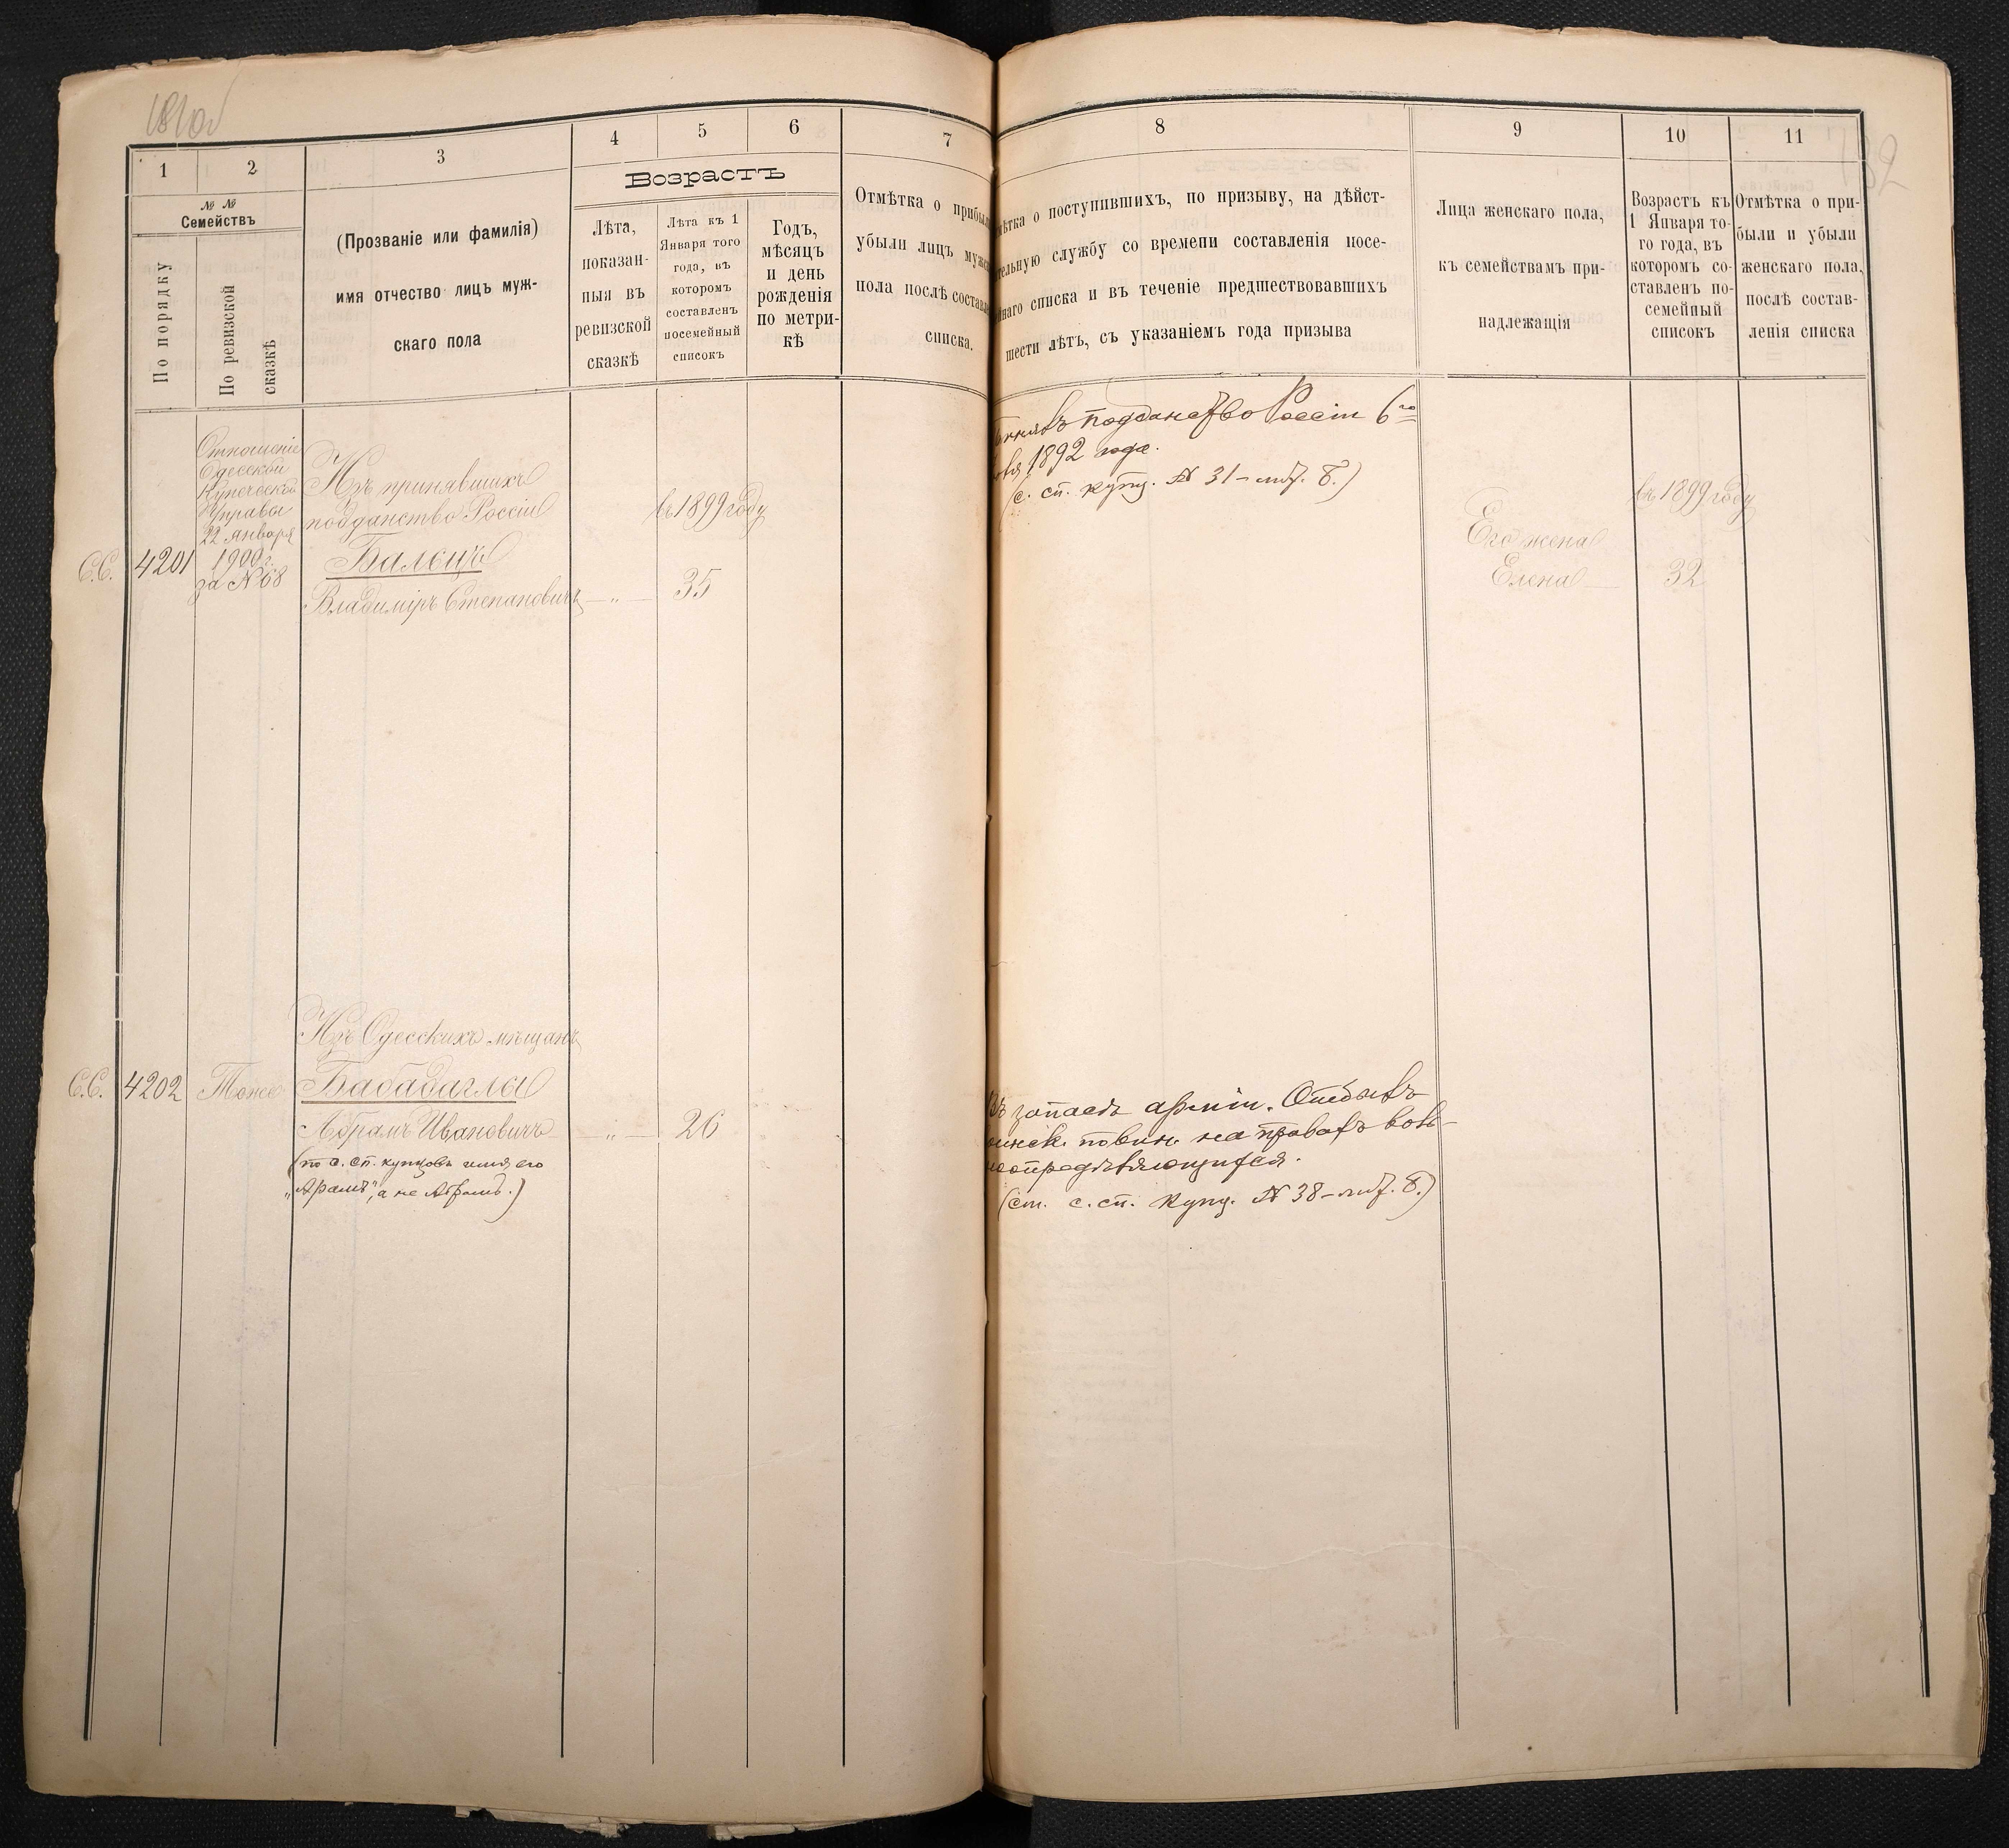 1
2
3
4
5
6
7
№ №
Семействъ
По порядку
По ревизской
сказкѣ
(Прозваніе или фамилія)
имя отчество лицъ муж-
скаго пола
Возрастъ
Лѣта,
показан-
ныя въ
ревизской
сказкѣ
Лѣта къ 1
Января того
года, въ
которомъ
составленъ
посемейный
списокъ
Годъ,
мѣсяцъ
и день
рожденія
по метри-
кѣ
Отмѣтка о прибыли
убыли лицъ мужск
пола послѣ составле
списка.
С.С.
4201
Отношеніе
Одесской
Купеческой
Управы
22 января
1900 г.
за № 68
Изъ принявшихъ
подданство Россіи
Балоцъ
Владиміръ Степановичъ
— " —
въ 1899 году
35
С.С.
4202
Тоже
Изъ Одесскихъ мѣщанъ
Бабадаглы
Абрамъ Ивановичъ
(по с. сп. купцовъ имя его
„Арамъ", а не Абрамъ.)
— " —
26
8
9
10
11
мѣтка о поступившихъ, по призыву, на дѣйст-
тельную службу со времени составленія посе-
йнаго списка и въ теченіе предшествовавшихъ
шести лѣтъ, съ указаніемъ года призыва
Лица женскаго пола,
къ семействамъ при-
надлежащія
Возрастъ къ
1 Января то-
го года, въ
которомъ со-
ставленъ по-
семейный
списокъ
Отмѣтка о при-
были и убыли
женскаго пола,
послѣ состав-
ленія списка
подданство Россіи 6го
1892 года.
(с. сп. купц. № 31 – лит. Б.)
Его жена
Елена —
въ 1899 году
32
Въ запасѣ арміи. Отбылъ
воинск. повин. на правахъ воль-
ноопредѣляющагося.
(см. с. сп. купц. № 38 – лит. Б.)